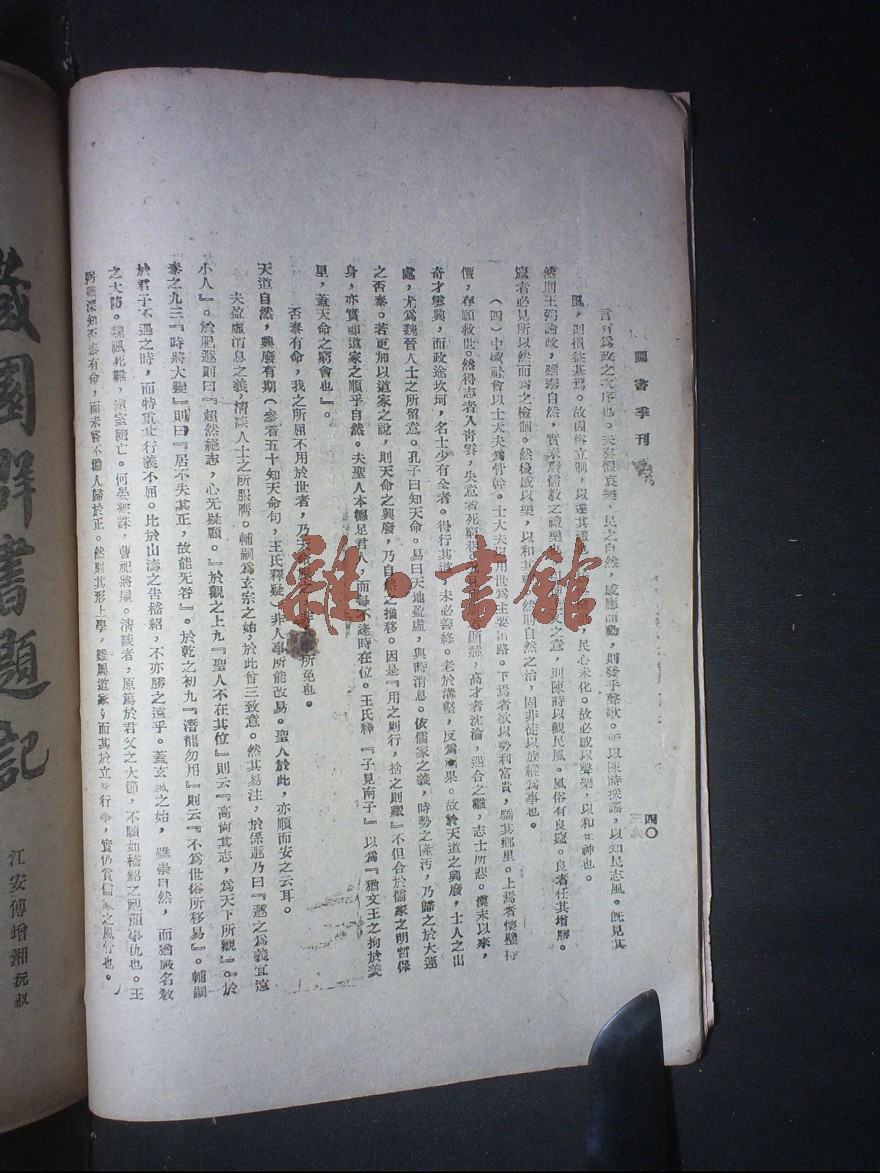 圖書季刊
四〇
言有為政之次序也。夫喜懼哀樂，民之自然，感應而動，則發乎聲歌。所以陳詩採謠，以知民志風。既見其
風，則損益基焉。故因俗立制，以達其禮，民心未化。故必感以聲樂，以和其神也。
然則王弼論政，雖奉自然，實未廢儒教之禮樂也，之意，則陳詩以觀民風。風俗有良窳。良者任其增勝。
窳者必見所以然而為之檢制。然後感以樂，以和其神。然則自然之治，固非徒以放縱為事也。
（四）中域社會以士大夫為骨幹。士大夫以用世為主要出路。下焉者欲以勢利富貴，驕其鄉里。上焉者懷璧待
價，存願救世。然得志者入青雲，失意者死窮巷。高才者沈淪，遇合之難，志士所悲。漢末以來，
奇才雲興，而政途坎坷，名士少有全者。得行其道，未必善終。老於溝壑，反為福果。故於天道之興廢，士人之出
處，尤為魏晉人士之所留意。孔子曰知天命。易曰天地盈虛，與時消息。依儒家之義，時勢之隆汚，乃歸之於大運
之否泰。若更加以道家之說，則天命之興廢，乃自然之推移。因是『用之則行，捨之則藏』不但合於儒家之明哲保
身，亦實即道家之順乎自然。夫聖人本德足君人，而每不逢時在位。王氏釋『子見南子』以為『猶文王之拘於羑
里，蓋天命之窮會也』。
否泰有命，我之所屈不用於世者，乃天命所免也。
天道自然，興廢有期（參看五十知天命句，王氏釋疑）非人事所能改易。聖人於此，亦順而安之云耳。
夫盈虛消息之義，清談人士之所服膺。輔嗣為玄宗之始，於此曾三致意。然其易注，於係遯乃曰『遯之為義宜遠
小人』。於肥遯則曰『超然絕志，心无疑顧。』於觀之上九『聖人不在其位』則云『高尚其志，為天下所觀』。於
泰之九三『時將大變』則曰『居不失其正，故能无咎』。於乾之初九『潛龍勿用』則云『不為世俗所移易』。輔嗣
於君子不遇之時，而特重其行義不屈。比於山濤之告嵇紹，不亦勝之遠乎。蓋玄風之始，雖崇自然，而猶嚴名教
之大防。魏諷死難，漢室隨亡。何晏被誅，曹祀將屋。清談者，原篤於君父之大節，不願如嵇紹之靦顏事仇也。王
弼雖深知否泰有命，而未嘗不勸人歸於正。然則其形上學，雖屬道家，而其於立身行事，實仍賞儒家之風骨也。
藏園羣書題記
江安傅增湘沅叔
雜·書館